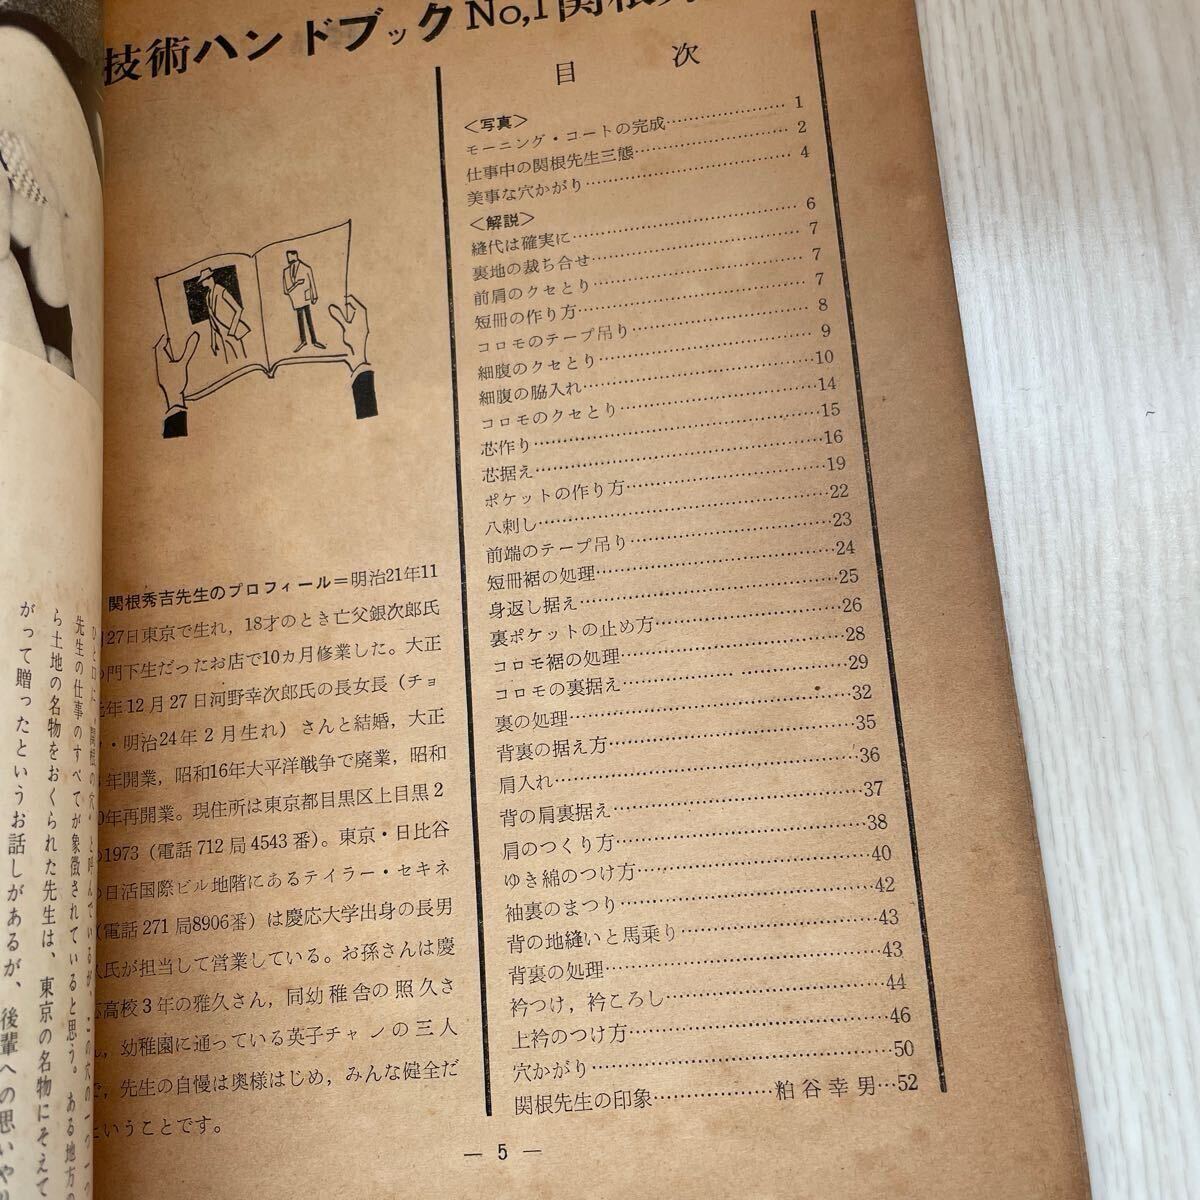 技術ハンドブックNo,1関根
目次
＜写真＞
モーニング・コートの完成……………………1
仕事中の関根先生三態……………………2
美事な穴かがり……………………4
＜解説＞
縫代は確実に……………………6
裏地の裁ち合せ……………………7
前肩のクセとり……………………7
短冊の作り方……………………7
コロモのテープ吊り……………………8
細腹のクセとり……………………9
細腹の脇入れ……………………10
コロモのクセとり……………………14
芯作り……………………15
芯据え……………………16
ポケットの作り方……………………19
八刺し……………………22
前端のテープ吊り……………………23
短冊裾の処理……………………24
身返し据え……………………25
裏ポケットの止め方……………………26
コロモ裾の処理……………………28
コロモの裏据え……………………29
裏の処理……………………32
背裏の据え方……………………35
肩入れ……………………36
背の肩裏据え……………………37
肩のつくり方……………………38
ゆき綿のつけ方……………………40
袖裏のまつり……………………42
背の地縫いと馬乗り……………………43
背裏の処理……………………43
衿つけ，衿ころし……………………44
上衿のつけ方……………………46
穴かがり……………………50
関根先生の印象………………粕谷幸男…52
関根秀吉先生のプロフィール＝明治21年11
27日東京で生れ，18才のとき亡父銀次郎氏
門下生だったお店で10カ月修業した。大正
年12月27日河野幸次郎氏の長女長（チョ
・明治24年2月生れ）さんと結婚，大正
年開業，昭和16年大平洋戦争で廃業，昭和
0年再開業。現住所は東京都目黒区上目黒2
1973（電話712局4543番）。東京・日比谷
日活国際ビル地階にあるテイラー・セキネ
（電話271局8906番）は慶応大学出身の長男
氏が担当して営業している。お孫さんは慶
高校3年の雅久さん，同幼稚舎の照久さ
，幼稚園に通っている英子チャンの三人
，先生の自慢は奥様はじめ，みんな健全だ
ということです。
— 5 —
ひと口に〝関根の穴〟と呼んでいるが、この穴の一つ一つ
先生の仕事のすべてが象徴されていると思う。ある地方の
ら土地の名物をおくられた先生は、東京の名物にそえて
がって贈ったというお話しがあるが、後輩への思いや